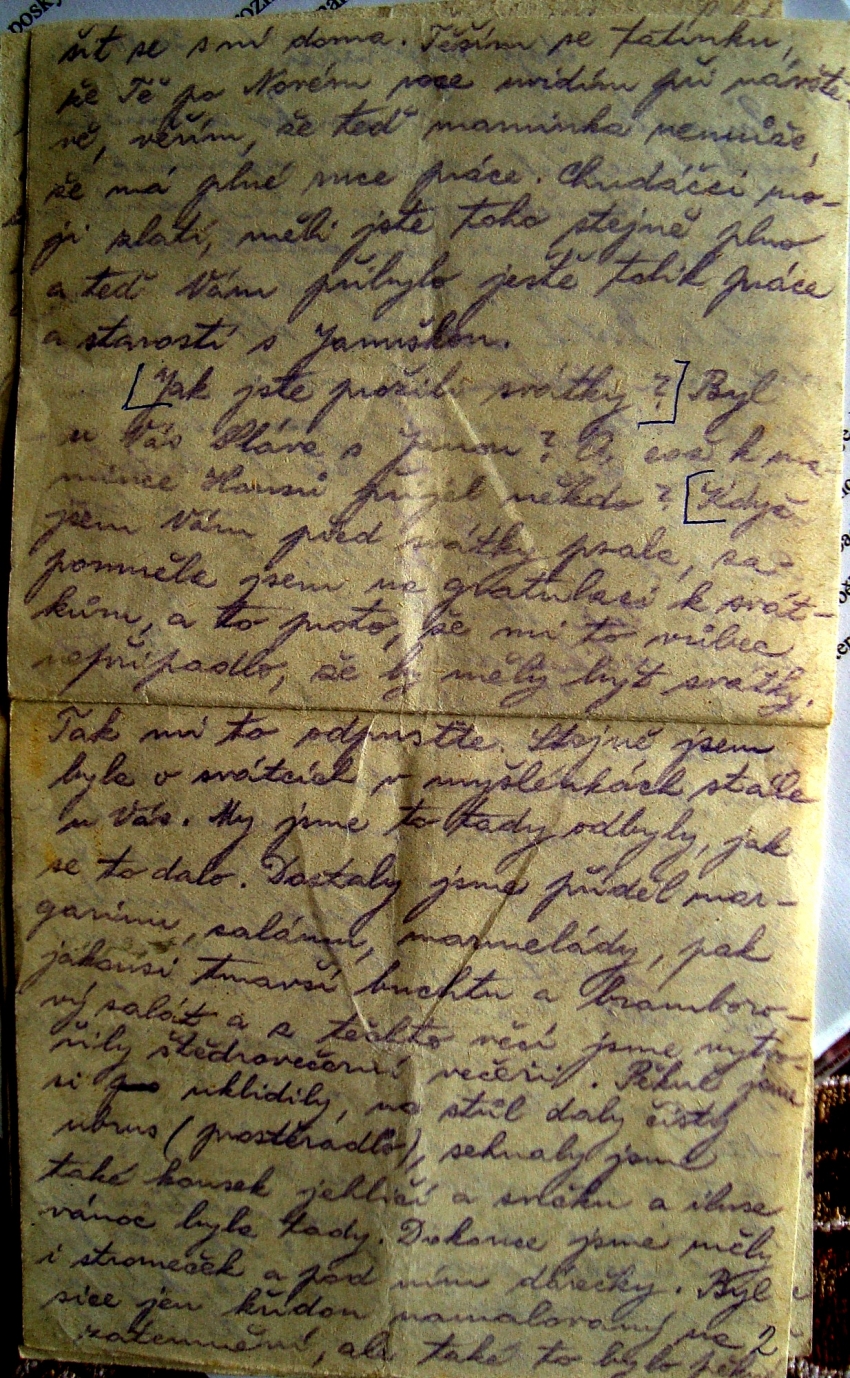 šit se s ní doma. Těším se tatínku,
že Tě po Novém roce uvidím při návště-
vě, věřím, že teď maminka nemůže,
že má plné ruce práce. Chudáčci mo-
ji zlatí, měli jste toho stejně plno
a teď Vám přibylo ještě tolik práce
a starostí s Januškou.
[Jak jste prožili svátky?] Byl
u Vás Sláva s Jenou? A což k ma-
mince Hansů přijel někdo? [Když
jsem Vám před svátky psala, za-
pomněla jsem na gratulaci k svát-
kům, a to proto, že mi to vůbec
nepřipadlo, že by měly být svátky.
Tak mi to odpusťte. Stejně jsem
byla o svátcích v myšlénkách stále
u Vás. My jsme to tady odbyly, jak
se to dalo. Dostaly jsme příděl mar-
garinu, salámu, marmelády, pak
jakousi tmavší buchtu a bramboro-
vý salát a z těchto věcí jsme vytvo-
řily štědrovečerní večeři. Pěkně jsme
si uklidily, na stůl daly čistý
ubrus (prostěradlo), sehnaly jsme
také kousek jehličí a svíčku a iluse
vánoc byla tady. Dokonce jsme měly
i stromeček a pod ním dárečky. Byl
sice jen křídou namalovaný na 2
zatemnění, ale také to bylo pěkné